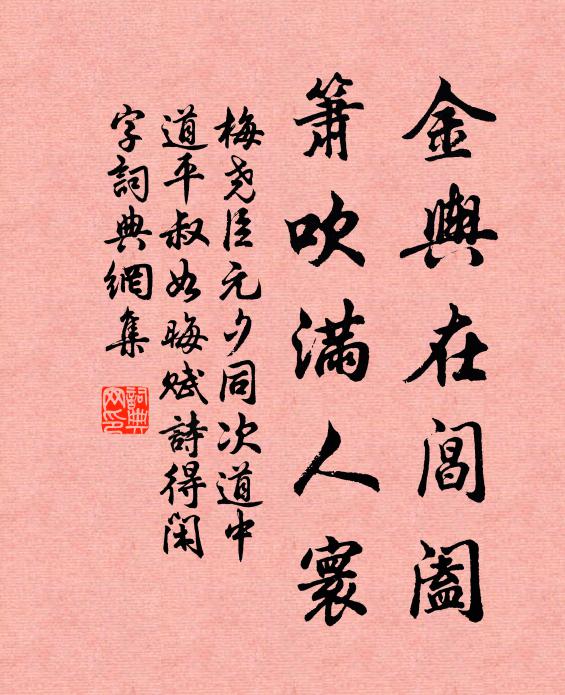 金輿在閶闔
簫吹滿人寰
梅堯臣元夕同次道中
道平叔如晦賦詩得閑
字詞典網集
詞典网印